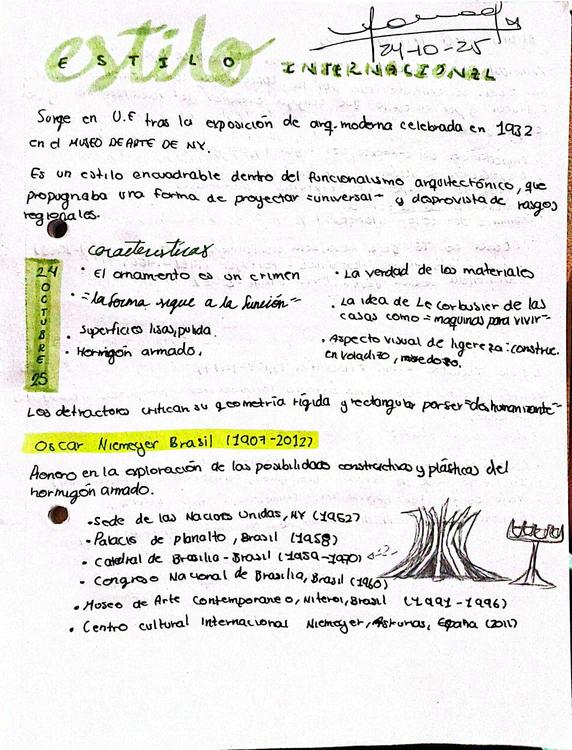 24-10-25
estilo
ESTILO INTERNACIONAL
Surge en U.E tras la exposición de arq. moderna celebrada en 1932
en el MUSEO DE ARTE DE NY.
Es un estilo encuadrable dentro del funcionalismo arquitectónico, que
propugnaba una forma de proyectar "universal" y desprovista de rasgos
regionales.
características
24 OCTUBRE 25
• El ornamento es un crimen
• "la forma sigue a la función"
• Superficies lisas, pulida.
• Hormigón armado.
• La verdad de los materiales
• La idea de Le corbusier de las
casas como "maquinas para vivir"
• Aspecto visual de ligereza: construc.
en voladizo,
Los detractores critican su geometría rígida y rectangular por ser "deshumanizante"
Oscar Niemeyer Brasil (1907-2012)
Pionero en la exploración de las posibilidades constructivas y plásticas del
hormigón armado.
• Sede de las Nacions Unidas, NY (1952)
• Palacio de planalto, Brasil (1958)
• Catedral de Brasilia - Brasil (1959-1970) ?
• Congreso Nacional de Brasilia, Brasil (1960)
• Museo de Arte Contemporaneo, Niteroi, Brasil (1991-1996)
• Centro cultural Internacional Niemeyer, Asturias, España (2011)